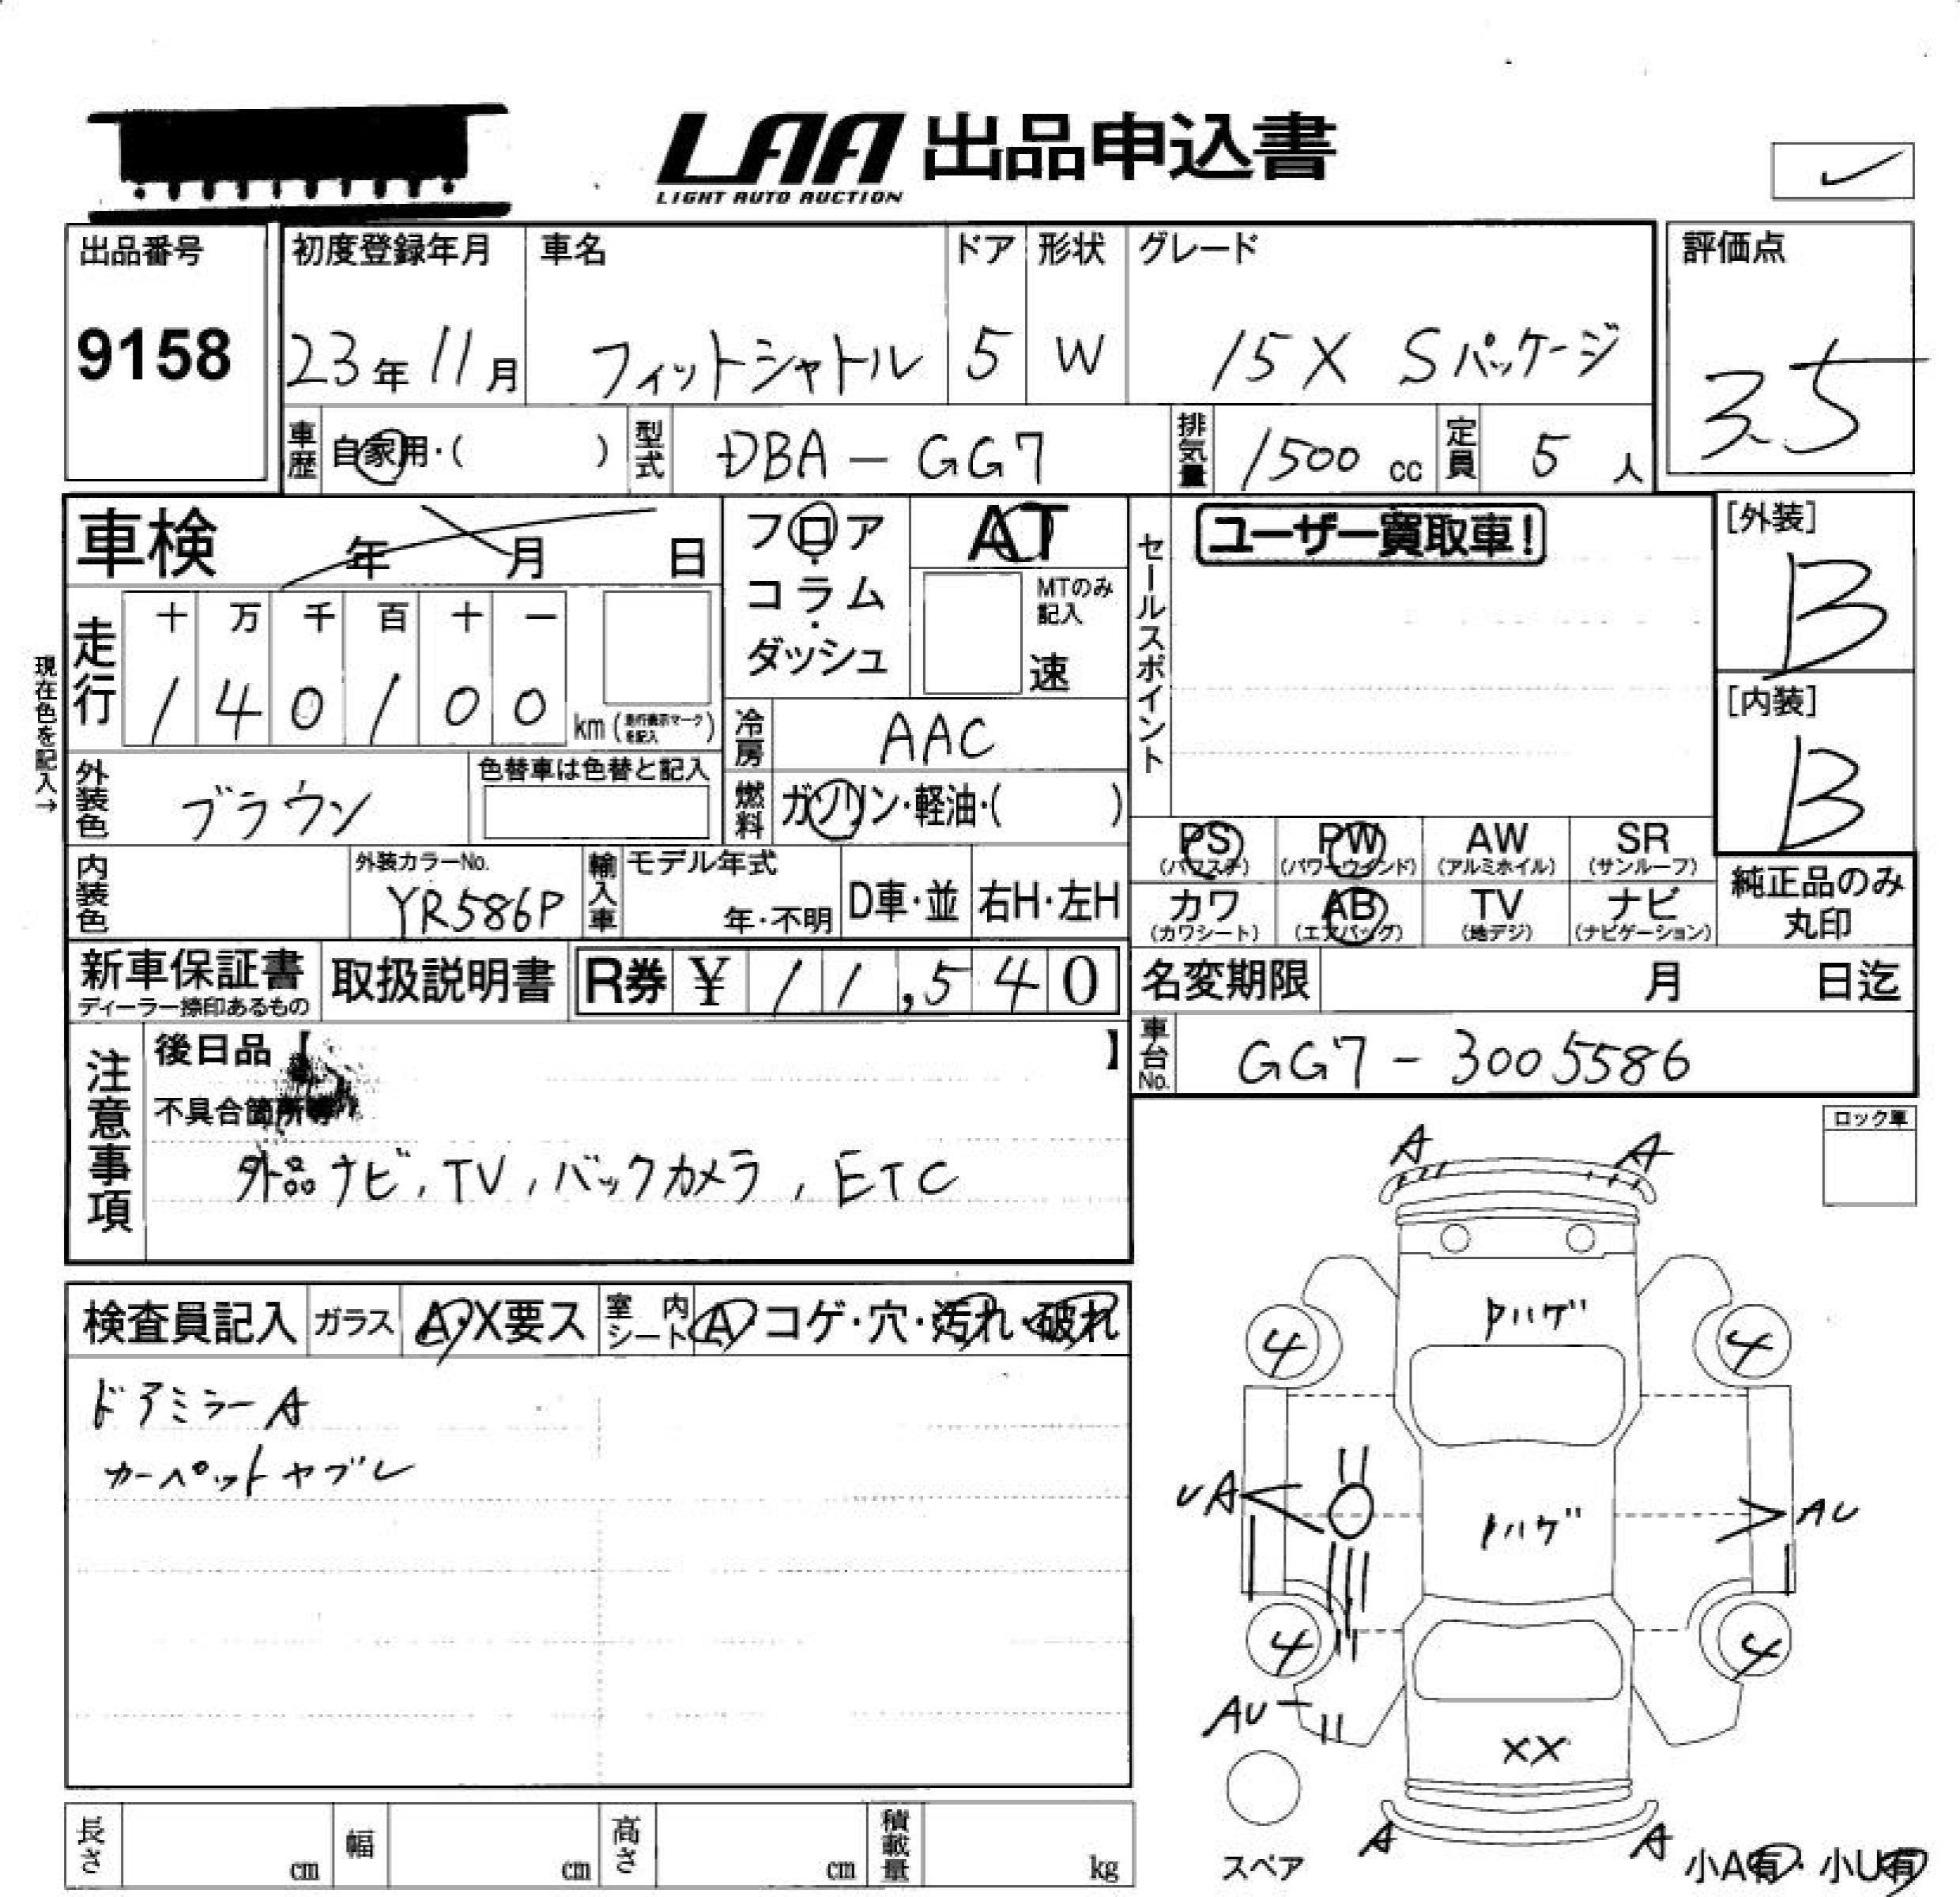 LAA 出品申込書
LIGHT AUTO AUCTION
出品番号
9158
初度登録年月
23年11月
車名
フィットシャトル
ドア
5
形状
W
グレード
15X Sパッケージ
評価点
3.5
車歴 自家用・( )
型式 DBA-GG7
排気量 1500 cc
定員 5 人
車検 年 月 日
フロア・コラム・ダッシュ
AT
MTのみ記入
速
セールスポイント
ユーザー買取車!
[外装]
B
[内装]
B
現在色を記入→
走行
十 万 千 百 十 一
1 4 0 1 0 0 km (走行表示マークを記入)
冷房 AAC
外装色 ブラウン
色替車は色替と記入
燃料 ガソリン・軽油・( )
内装色
外装カラーNo.
YR586P
輸入車
モデル年式
年・不明
D車・並
右H・左H
PS (パワステ)
PW (パワーウインド)
AW (アルミホイル)
SR (サンルーフ)
カワ (カワシート)
AB (エアバッグ)
TV (地デジ)
ナビ (ナビゲーション)
純正品のみ丸印
新車保証書
ディーラー捺印あるもの
取扱説明書
R券 ¥ 11,540
名変期限 月 日迄
車台No. GG7-3005586
注意事項
後日品【 】
不具合箇所等
外品ナビ, TV, バックカメラ, ETC
ロック車
検査員記入
ガラス A・X要ス
室内シート A・コゲ・穴・汚れ・破れ
ドアミラーA
カーペットヤブレ
A A
トハゲ
4 4
UA
トハゲ
AU
4 4
AU
XX
A A
スペア
小A有・小U有
長さ cm
幅 cm
高さ cm
積載量 kg